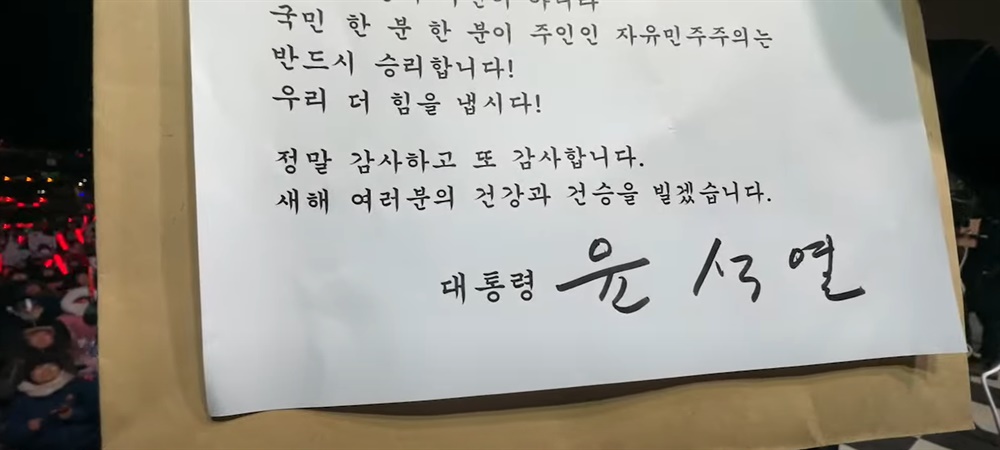 국민 한 분 한 분이 주인인 자유민주주의는
반드시 승리합니다!
우리 더 힘을 냅시다!
정말 감사하고 또 감사합니다.
새해 여러분의 건강과 건승을 빌겠습니다.
대통령 윤석열